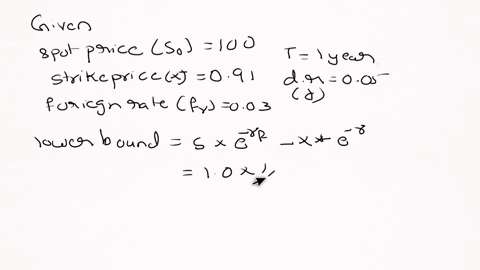 Given
spot price (S₀) = 100
strike price (x) = 0.91
foriegn rate (fr) = 0.03
T = 1 year
d.r = 0.05
(r)
lower bound = S × e^-rf - x * e^-r
= 1.0 ×